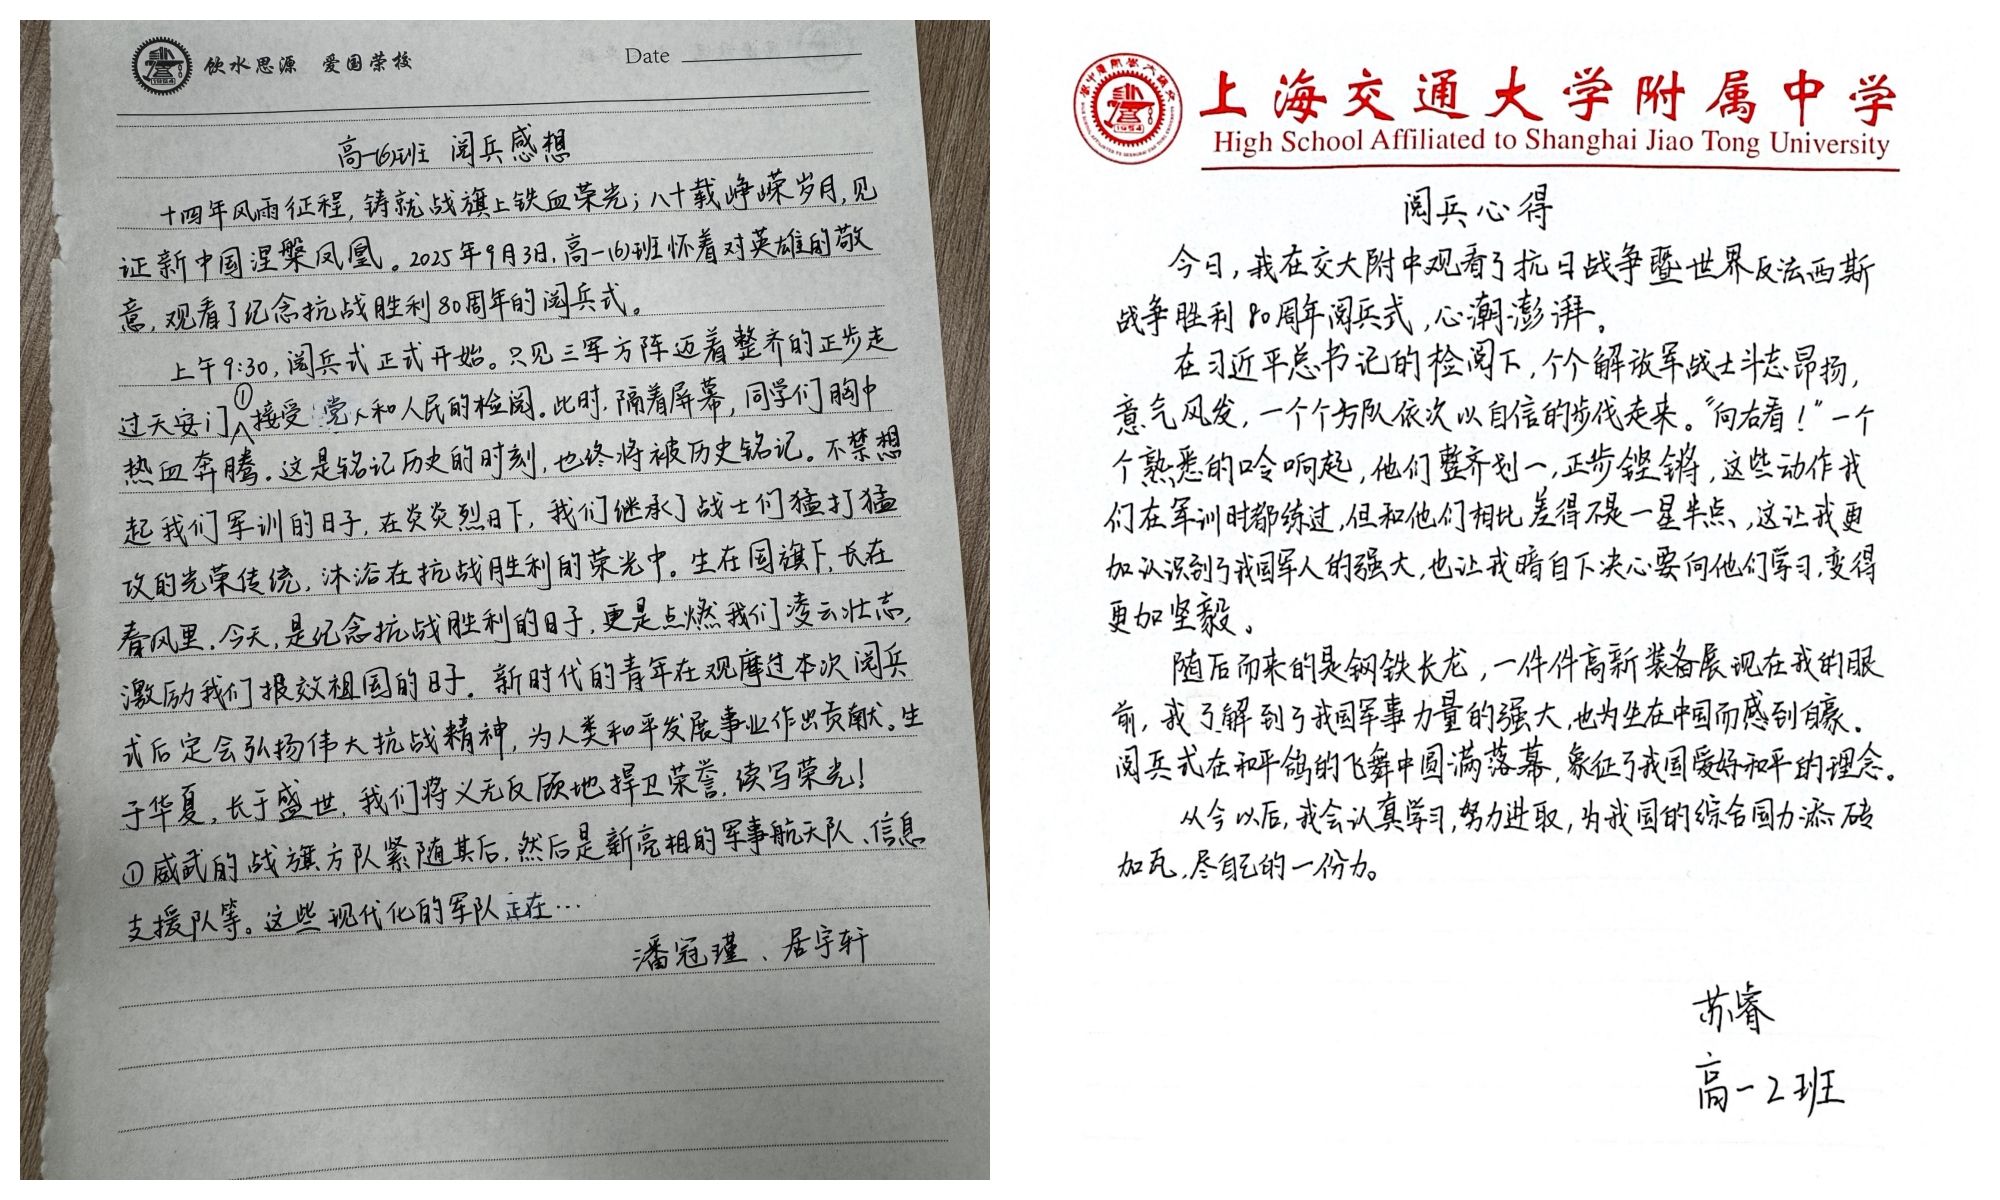 饮水思源 爱国荣校
Date
高一(6)班 阅兵感想
十四年风雨征程，铸就战旗上铁血荣光；八十载峥嵘岁月，见
证新中国涅槃凤凰。2025年9月3日，高一(6)班怀着对英雄的敬
意，观看了纪念抗战胜利80周年的阅兵式。
上午9:30，阅兵式正式开始。只见三军方阵迈着整齐的正步走
过天安门①接受党人和人民的检阅。此时，隔着屏幕，同学们胸中
热血奔腾。这是铭记历史的时刻，也终将被历史铭记。不禁想
起我们军训的日子，在炎炎烈日下，我们继承了战士们猛打猛
攻的光荣传统，沐浴在抗战胜利的荣光中。生在国旗下，长在
春风里。今天，是纪念抗战胜利的日子，更是点燃我们凌云壮志，
激励我们报效祖国的日子。新时代的青年在观摩过本次阅兵
式后定会弘扬伟大抗战精神，为人类和平发展事业作出贡献。生
于华夏，长于盛世，我们将义无反顾地捍卫荣誉，续写荣光！
①威武的战旗方队紧随其后，然后是新亮相的军事航天队、信息
支援队等。这些现代化的军队正在…
潘冠瑾、居宇轩
1954
上海交通大学附属中学
High School Affiliated to Shanghai Jiao Tong University
阅兵心得
今日，我在交大附中观看了抗日战争暨世界反法西斯
战争胜利80周年阅兵式，心潮澎湃。
在习近平总书记的检阅下，个个解放军战士斗志昂扬，
意气风发，一个个方队依次以自信的步伐走来。“向右看！”一个
个熟悉的口令响起，他们整齐划一，正步铿锵，这些动作我
们在军训时都练过，但和他们相比差得不是一星半点，这让我更
加认识到了我国军人的强大，也让我暗自下决心要向他们学习，变得
更加坚毅。
随后而来的是钢铁长龙，一件件高新装备展现在我的眼
前，我了解到了我国军事力量的强大，也为生在中国而感到自豪。
阅兵式在和平鸽的飞舞中圆满落幕，象征了我国爱好和平的理念。
从今以后，我会认真学习，努力进取，为我国的综合国力添砖
加瓦，尽自己的一份力。
苏睿
高一2班